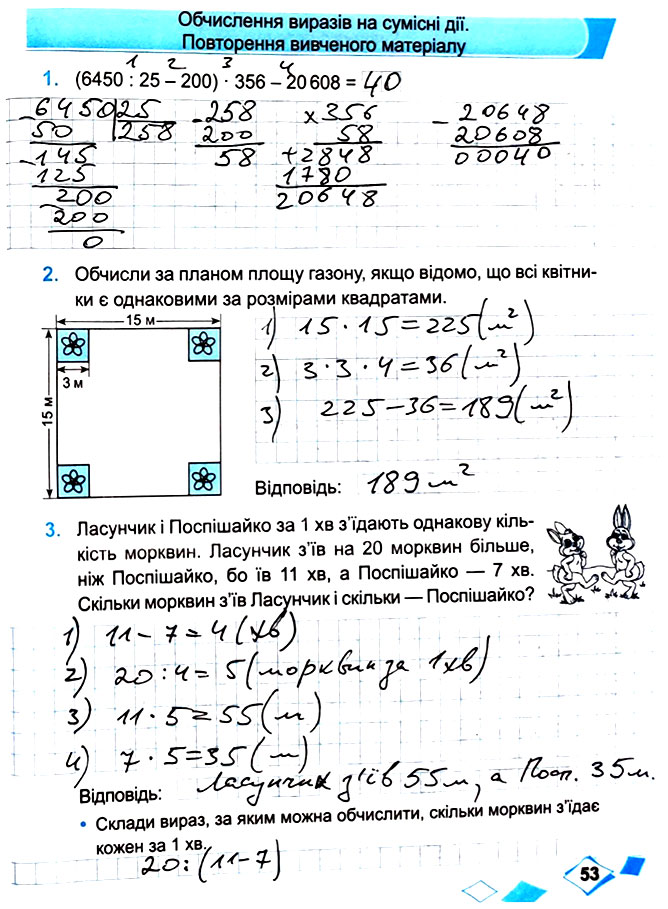 Обчислення виразів на сумісні дії.
Повторення вивченого матеріалу
1 2 3 4
1. (6450 : 25 – 200) · 356 – 20 608 = 40
6450 25 - 258 × 356 - 20648
50 258 200 58 20608
- 145 58 + 2848 00040
125 1780
200 20648
200
0
2. Обчисли за планом площу газону, якщо відомо, що всі квітни-
ки є однаковими за розмірами квадратами.
15 м
3 м
15 м
1) 15 · 15 = 225 (м²)
2) 3 · 3 · 4 = 36 (м²)
3) 225 – 36 = 189 (м²)
Відповідь: 189 м²
3. Ласунчик і Поспішайко за 1 хв з'їдають однакову кіль-
кість морквин. Ласунчик з'їв на 20 морквин більше,
ніж Поспішайко, бо їв 11 хв, а Поспішайко — 7 хв.
Скільки морквин з'їв Ласунчик і скільки — Поспішайко?
1) 11 – 7 = 4 (хв)
2) 20 : 4 = 5 (морквин за 1 хв)
3) 11 · 5 = 55 (м)
4) 7 · 5 = 35 (м)
Відповідь: Ласунчик з'їв 55 м, а Посп. 35 м.
• Склади вираз, за яким можна обчислити, скільки морквин з'їдає
кожен за 1 хв.
20 : (11 – 7)
53